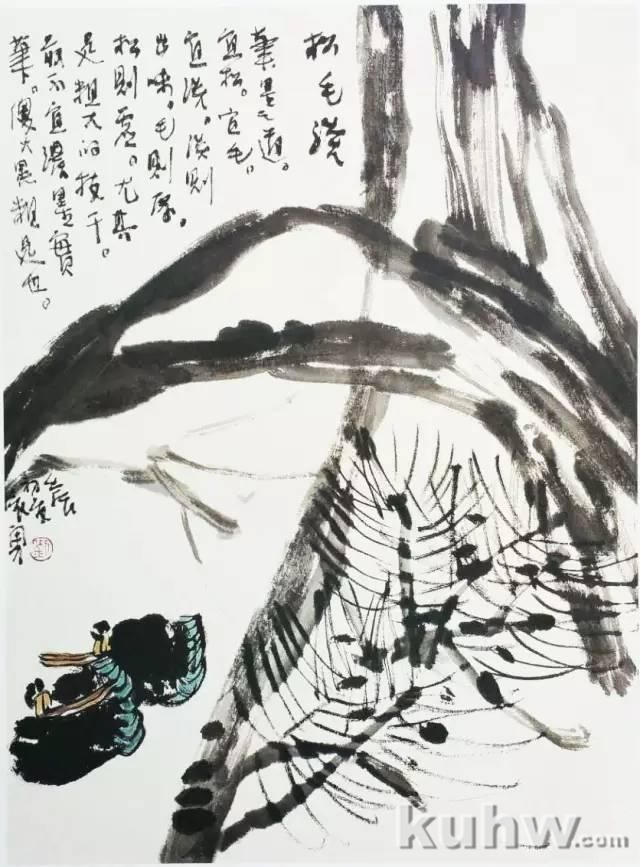 松毛淡
筆墨之道。
宜松。宜毛。
宜淡。淡則
出味。毛則厚。
松則。尤其
是粗大的枝干。
最不宜濃墨實
筆。傻大黑粗是也。
kuhw.com